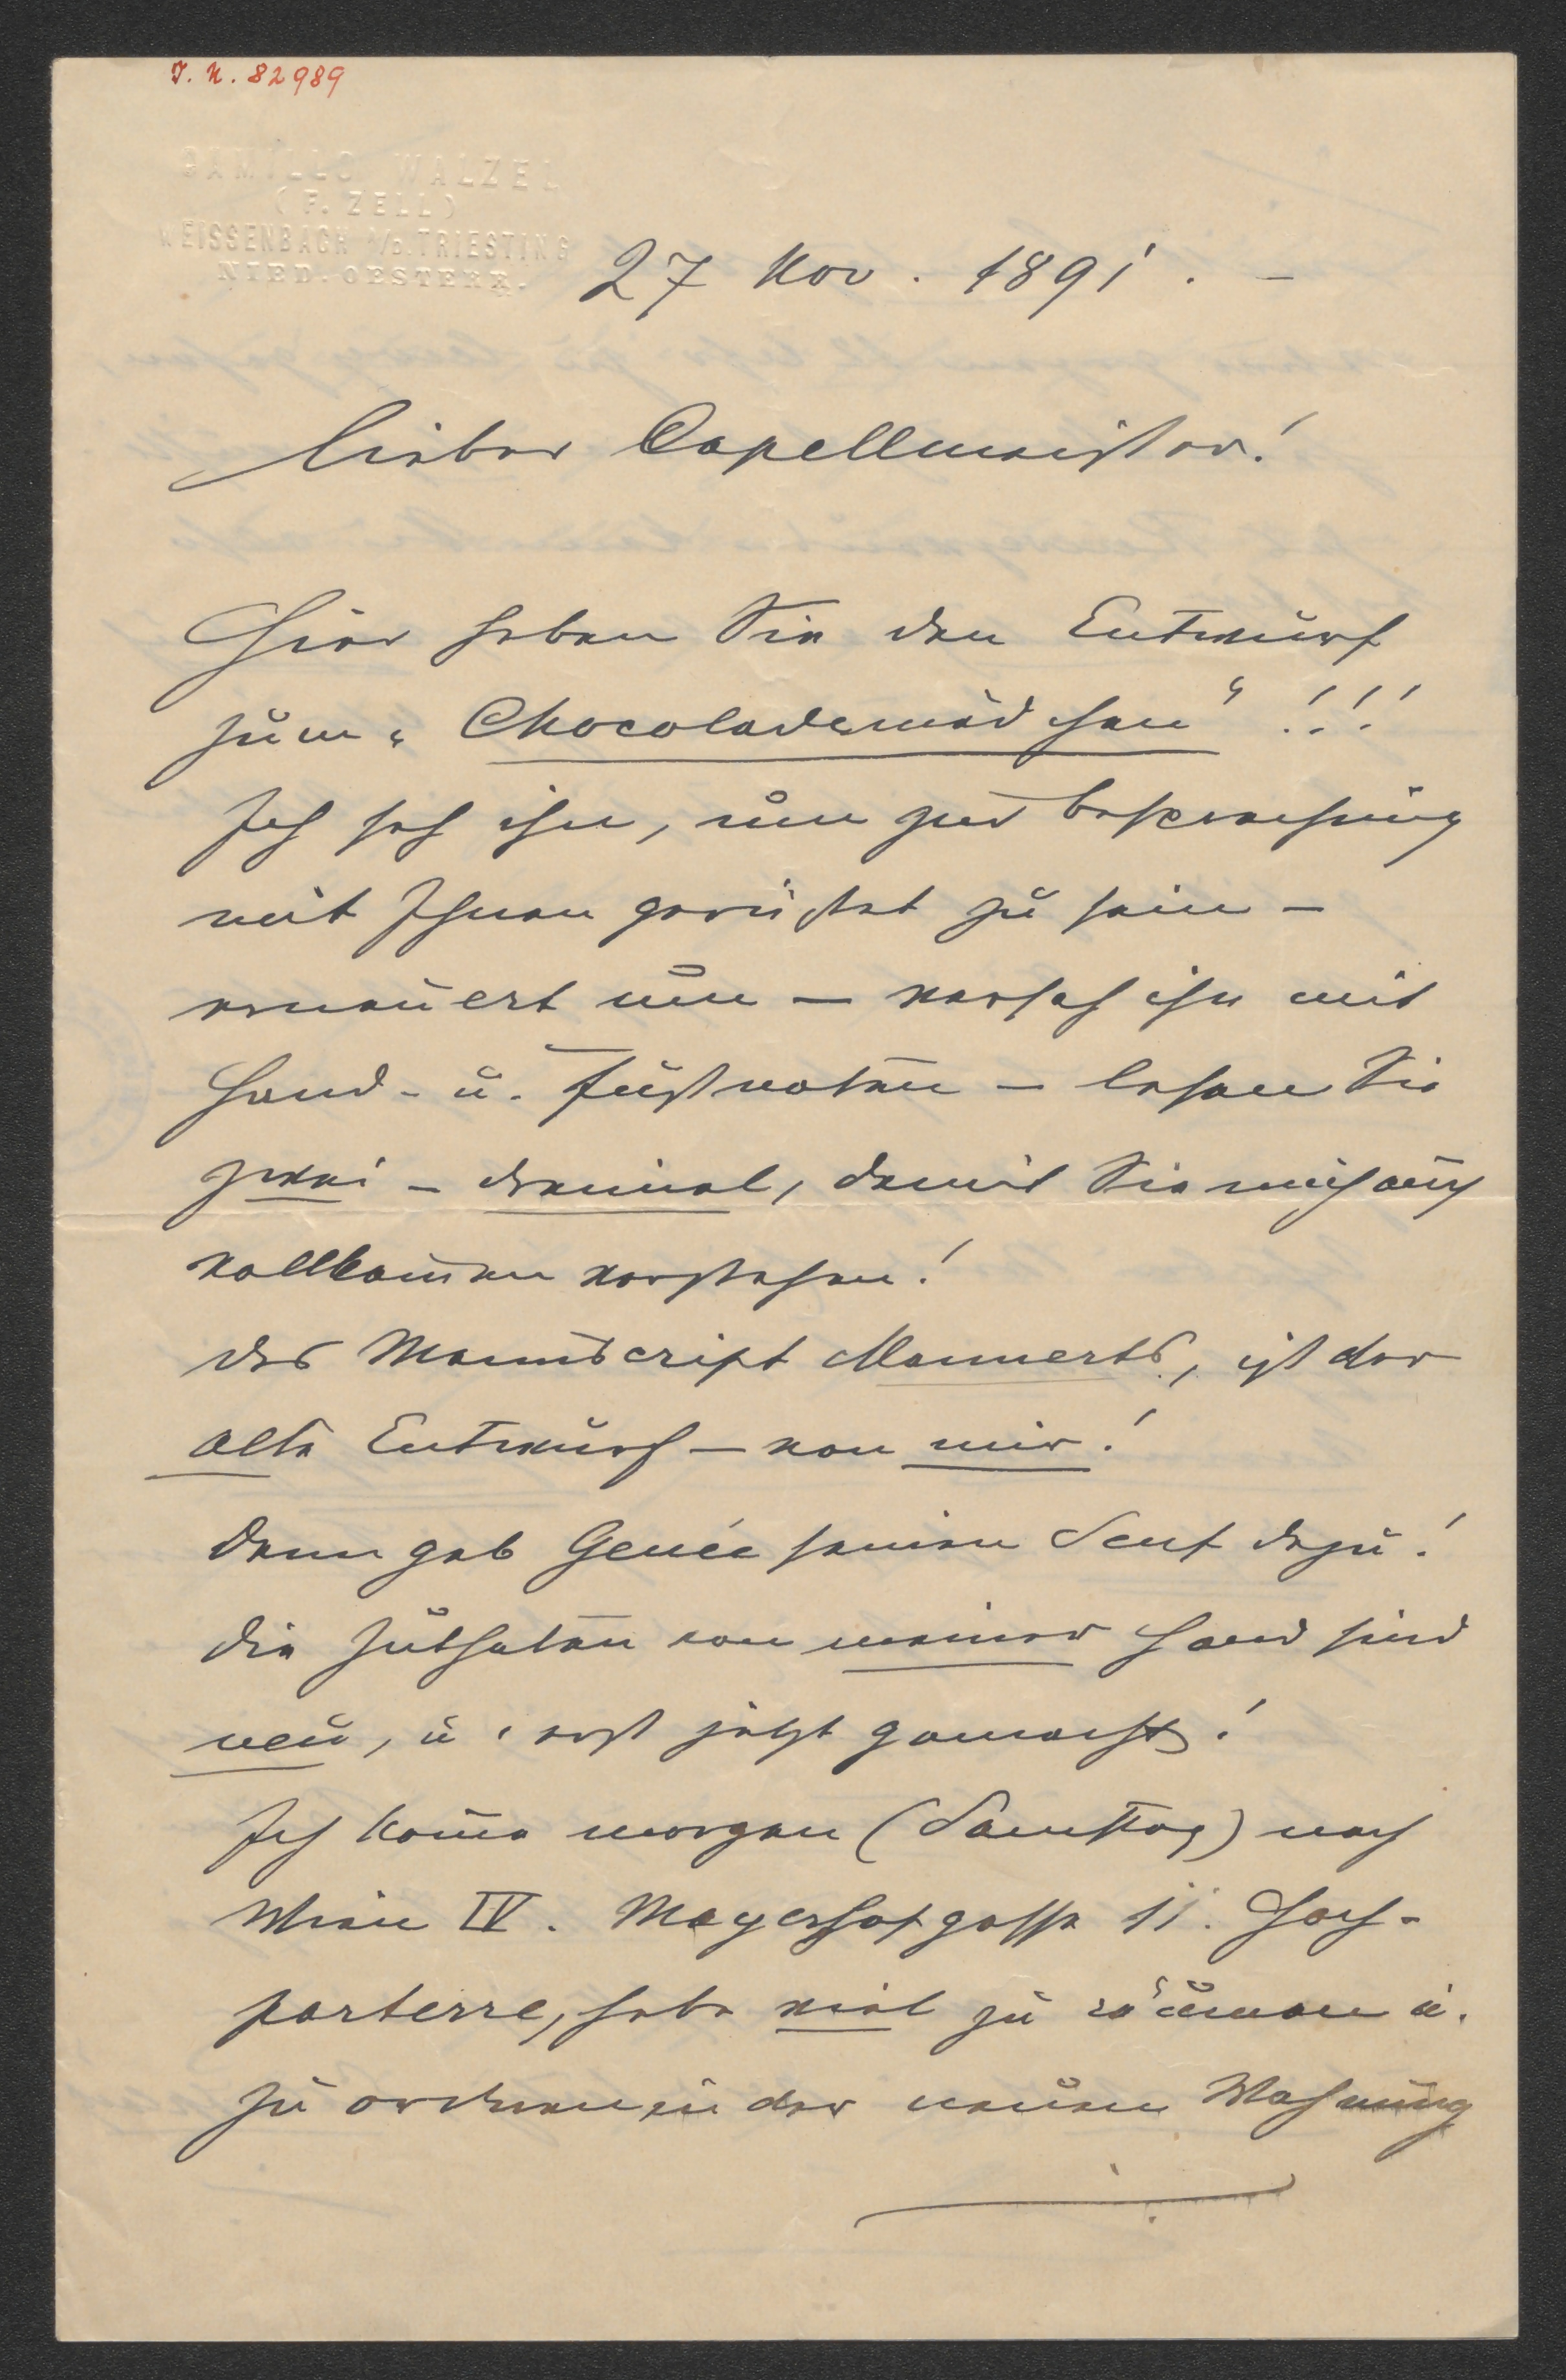 J. N. 82989
CAMILLO WALZEL
(F. ZELL)
WEISSENBACH A/D. TRIESTING
NIED.-OESTERR.
27 Nov. 1891. –
Lieber Capellmeister!
Hier haben Sie den Entwurf
zum „Chocolademädchen“!!!
Ich sah ihn, um zur Besprechung
mit Ihnen gerüstet zu sein –
erneuert um – versah ihn mit
Hand- u. Fußnoten – lesen Sie
zwei – dreimal, damit Sie mich auch
vollkom̅en verstehen!
Das Manuscript Mannerts, ist der
alte Entwurf – von mir!
Dann gab Genée seinen Senf dazu!
Die Zuthaten von meiner Hand sind
neu, u. erst jetzt gemacht!
Ich kom̅e morgen (Samstag) nach
Wien IV. Mayerhofgasse 11. Hoch-
parterre, habe viel zu räumen u.
zu ordnen in der neuen Wohnung